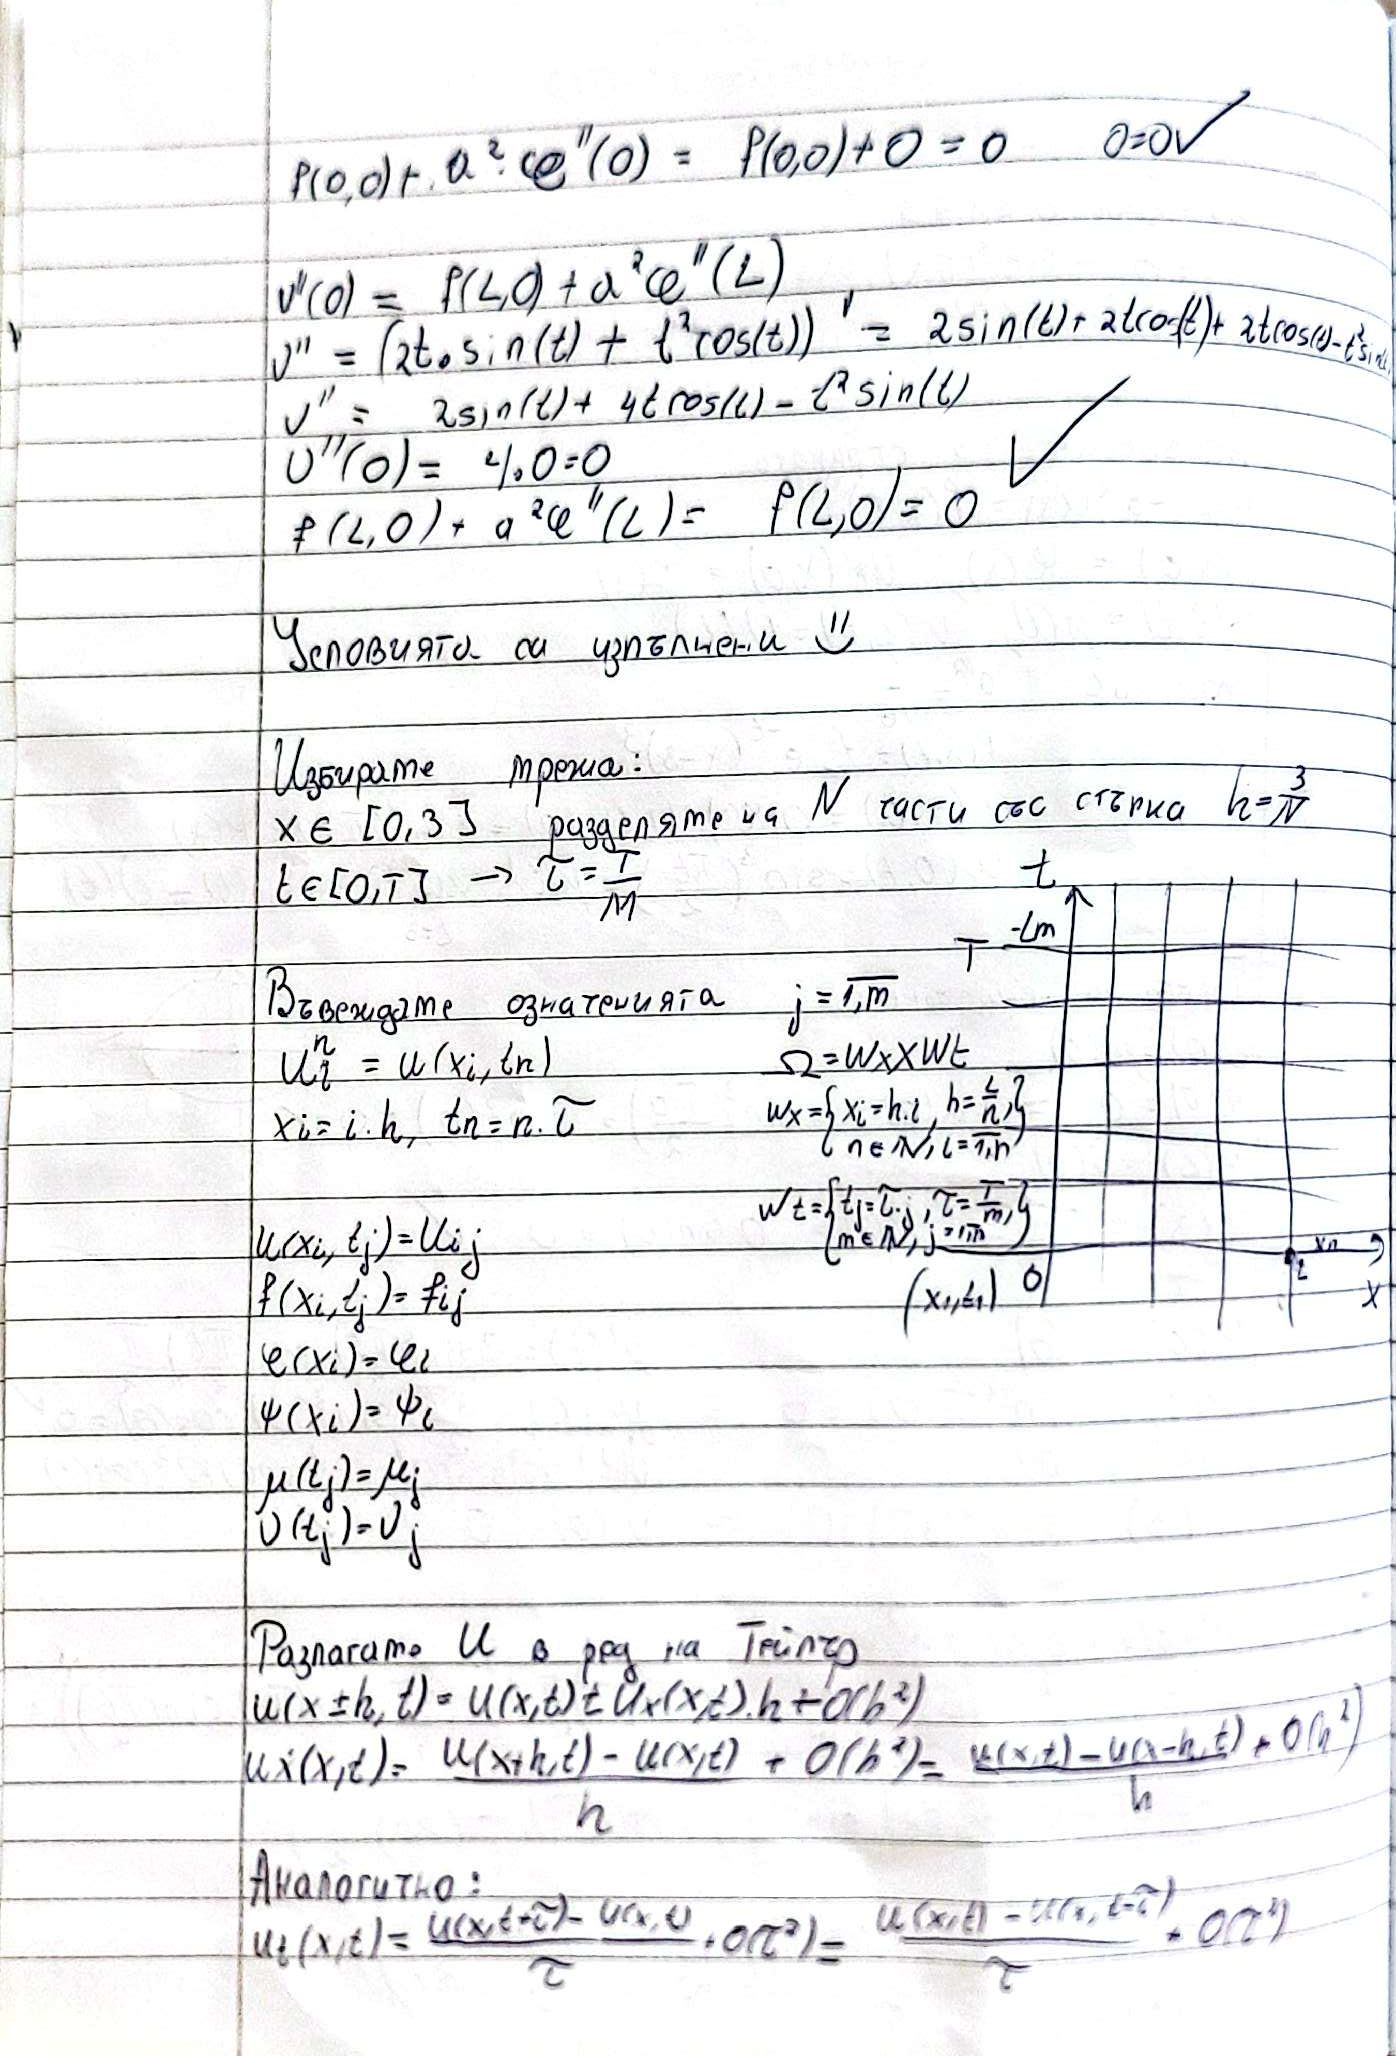 f(0,0)+.a².φ''(0) = f(0,0)+0 = 0   0=0✓
ν''(0) = f(L,0)+a²φ''(L)
ν'' = (2t.sin(t) + t²cos(t))' = 2sin(t)+2tcos(t)+2tcos(t)-t²sin(t)
ν'' = 2sin(t)+4tcos(t)-t²sin(t)
ν''(0) = 4.0=0 ✓
f(L,0)+a²φ''(L) = f(L,0) = 0
Условията са изпълнени
Избираме мрежа:
x∈[0,3] разделяме на N части със стъпка h=3/N
t∈[0,T] → τ=T/M
t
T tm
Въвеждаме означенията j=1,m
Uᵢⁿ = u(xi,tn) Ω=WxXWt
xi=i.h, tn=n.τ wx={xi=h.i, h=L/n,
n∈N, i=1,n}
wt={tj=τ.j, τ=T/m,
m∈N, j=1,m}
u(xi,tj)=Uij
xn
f(xi,tj)=fij (x1,t1) 0 L x
φ(xi)=φi
ψ(xi)=ψi
μ(tj)=μj
ν(tj)=νj
Разлагаме U в ред на Тейлър
u(x±h,t)=U(x,t)±Ux(x,t).h+O(h²)
ux(x,t)= (u(x+h,t)-u(x,t))/h + O(h²)= (u(x,t)-u(x-h,t))/h + O(h²)
Аналогично:
ut(x,t)= (u(x,t+τ)-u(x,t))/τ + O(τ²)= (u(x,t)-u(x,t-τ))/τ + O(τ²)